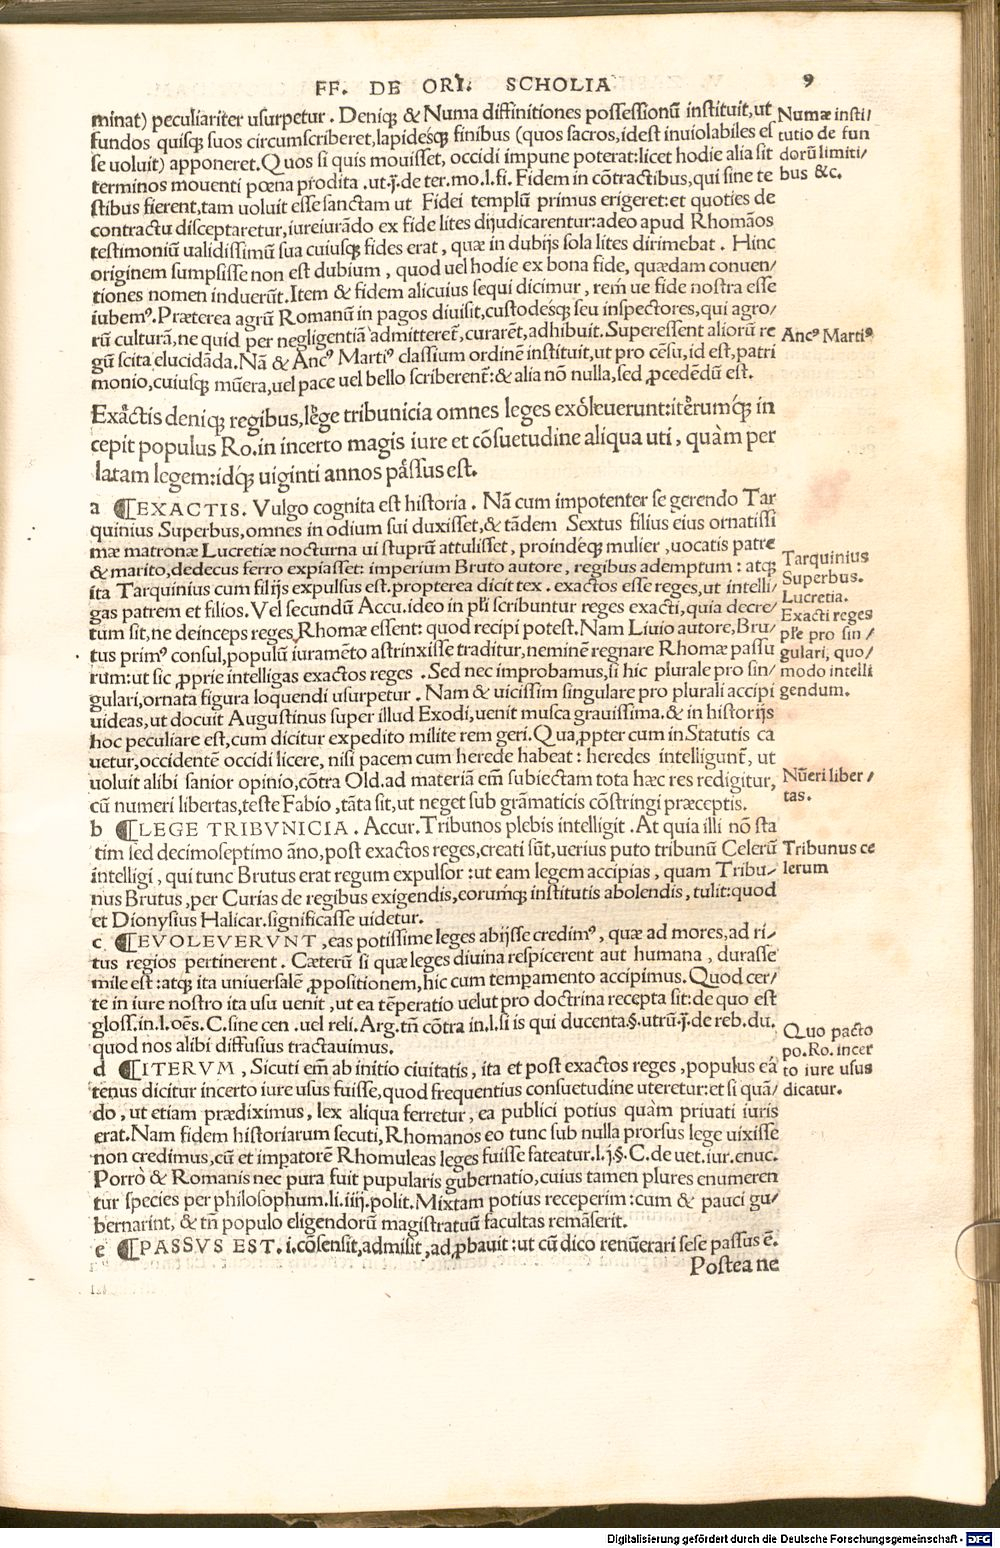 FF. DE ORI. SCHOLIA 9
minat) peculiariter usurpetur. Deniqꝫ & Numa diffinitiones possessionū instituit, ut
fundos quisqꝫ suos circumscriberet, lapidesqꝫ finibus (quos sacros, idest inuiolabiles es
se uoluit) apponeret. Quos si quis mouisset, occidi impune poterat: licet hodie alia sit
terminos mouenti pœna prodita. ut. j. de ter. mo. l. fi. Fidem in cōtractibus, qui sine te
stibus fierent, tam uoluit esse sanctam ut Fidei templū primus erigeret: et quoties de
contractu disceptaretur, iureiurādo ex fide lites dijudicarentur: adeo apud Rhomāos
testimoniū ualidissimū sua cuiusqꝫ fides erat, quæ in dubijs sola lites dirimebat. Hinc
originem sumpsisse non est dubium, quod uel hodie ex bona fide, quædam conuen/
tiones nomen induerūt. Item & fidem alicuius sequi dicimur, rem̄ ue fide nostra esse
iubemꝰ. Præterea agrū Romanū in pagos diuisit, custodesqꝫ seu inspectores, qui agro/
rū culturā, ne quid per negligentiā admitteret̄, curarēt, adhibuit. Superessent aliorū re
gū scita elucidāda. Nā & Ancꝰ Martiꝰ classium ordinē instituit, ut pro cēsu, id est, patri
monio, cuiusqꝫ mūera, uel pace uel bello scriberent̄: & alia nō nulla, sed ꝓcedēdū est.
Numæ insti/
tutio de fun
dorū limiti/
bus &c.
Ancꝰ Martiꝰ
Exactis deniqꝫ regibus, lege tribunicia omnes leges exoleuerunt: iterumqꝫ in
cepit populus Ro. in incerto magis iure et cōsuetudine aliqua uti, quàm per
latam legem: idqꝫ uiginti annos passus est.
a ¶EXACTIS. Vulgo cognita est historia. Nā cum impotenter se gerendo Tar
quinius Superbus, omnes in odium sui duxisset, & tādem Sextus filius eius ornatissi
mæ matronæ Lucretiæ nocturna ui stuprū attulisset, proindeqꝫ mulier, uocatis patre
& marito, dedecus ferro expiasset: imperium Bruto autore, regibus ademptum: atqꝫ
ita Tarquinius cum filijs expulsus est. propterea dicit tex. exactos esse reges, ut intelli/
gas patrem et filios. Vel secundū Accu. ideo in pl̄i scribuntur reges exacti, quia decre/
tum sit, ne deinceps reges Rhomæ essent: quod recipi potest. Nam Liuio autore, Bru/
tus primꝰ consul, populū iuramēto astrinxisse traditur, neminē regnare Rhomæ passu
rum: ut sic ꝓprie intelligas exactos reges. Sed nec improbamus, si hic plurale pro sin/
gulari, ornata figura loquendi usurpetur. Nam & uicissim singulare pro plurali accipi
uideas, ut docuit Augustinus super illud Exodi, uenit musca grauissima. & in historijs
hoc peculiare est, cum dicitur expedito milite rem geri. Qua ꝓpter cum in Statutis ca
uetur, occidentē occidi licere, nisi pacem cum herede habeat: heredes intelligunt̄, ut
uoluit alibi sanior opinio, cōtra Old. ad materiā em̄ subiectam tota hæc res redigitur,
cū numeri libertas, teste Fabio, tāta sit, ut neget sub grāmaticis cōstringi præceptis.
Tarquinius
Superbus.
Lucretia.
Exacti reges
pl̄e pro sin/
gulari, quo/
modo intelli
gendum.
Nūeri liber/
tas.
b ¶LEGE TRIBVNICIA. Accur. Tribunos plebis intelligit. At quia illi nō sta
tim sed decimoseptimo āno, post exactos reges, creati sūt, uerius puto tribunū Celerū
intelligi, qui tunc Brutus erat regum expulsor: ut eam legem accipias, quam Tribu/
nus Brutus, per Curias de regibus exigendis, eorumqꝫ institutis abolendis, tulit: quod
et Dionysius Halicar. significasse uidetur.
Tribunus ce
lerum
c ¶EVOLEVERVNT, eas potissime leges abijsse credimꝰ, quæ ad mores, ad ri/
tus regios pertinerent. Cæterū si quæ leges diuina respicerent aut humana, durasse
mile est: atqꝫ ita uniuersalē ꝓpositionem, hic cum temꝑamento accipimus. Quod cer/
te in iure nostro ita usu uenit, ut ea tēperatio uelut pro doctrina recepta sit: de quo est
gloss. in. l. oēs. C. sine cen. uel reli. Arg. tn̄ cōtra in. l. si is qui ducenta. §. utrū. j. de reb. du.
quod nos alibi diffusius tractauimus.
d ¶ITERVM, Sicuti em̄ ab initio ciuitatis, ita et post exactos reges, populus eā
tenus dicitur incerto iure usus fuisse, quod frequentius consuetudine uteretur: et si quā/
do, ut etiam prædiximus, lex aliqua ferretur, ea publici potius quàm priuati iuris
erat. Nam fidem historiarum secuti, Rhomanos eo tunc sub nulla prorsus lege uixisse
non credimus, cū et imꝑatorē Rhomuleas leges fuisse fateatur. l. ij. §. C. de uet. iur. enuc.
Porrò & Romanis nec pura fuit pupularis gubernatio, cuius tamen plures enumeren
tur species per philosophum. li. iiij. polit. Mixtam potius receperim: cum & pauci gu/
bernarint, & tn̄ populo eligendorū magistratuū facultas remāserit.
Quo pacto
po. Ro. incer
to iure usus
dicatur.
e ¶PASSVS EST. i. cōsensit, admisit, adꝓbauit: ut cū dico renūerari sese passus ē.
Postea ne
Digitalisierung gefördert durch die Deutsche Forschungsgemeinschaft - DFG